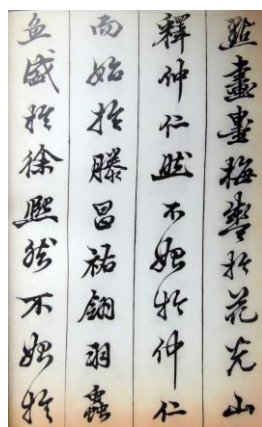 點畫畫梅於花光山
釋仲仁然不始於仲仁
而始於滕昌祐翎羽蟲
魚盛於徐熙然不始於